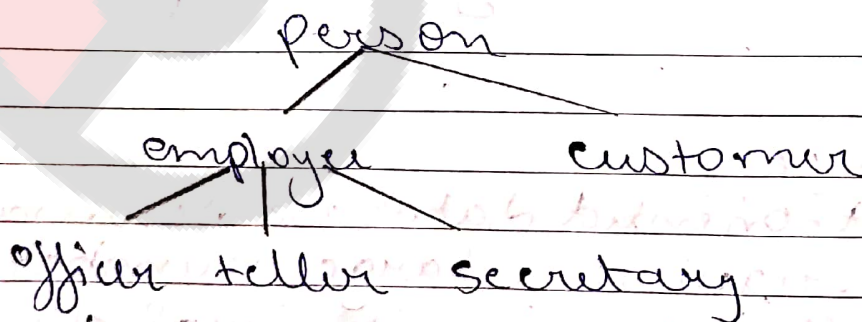 person
employee customer
officer teller secretary